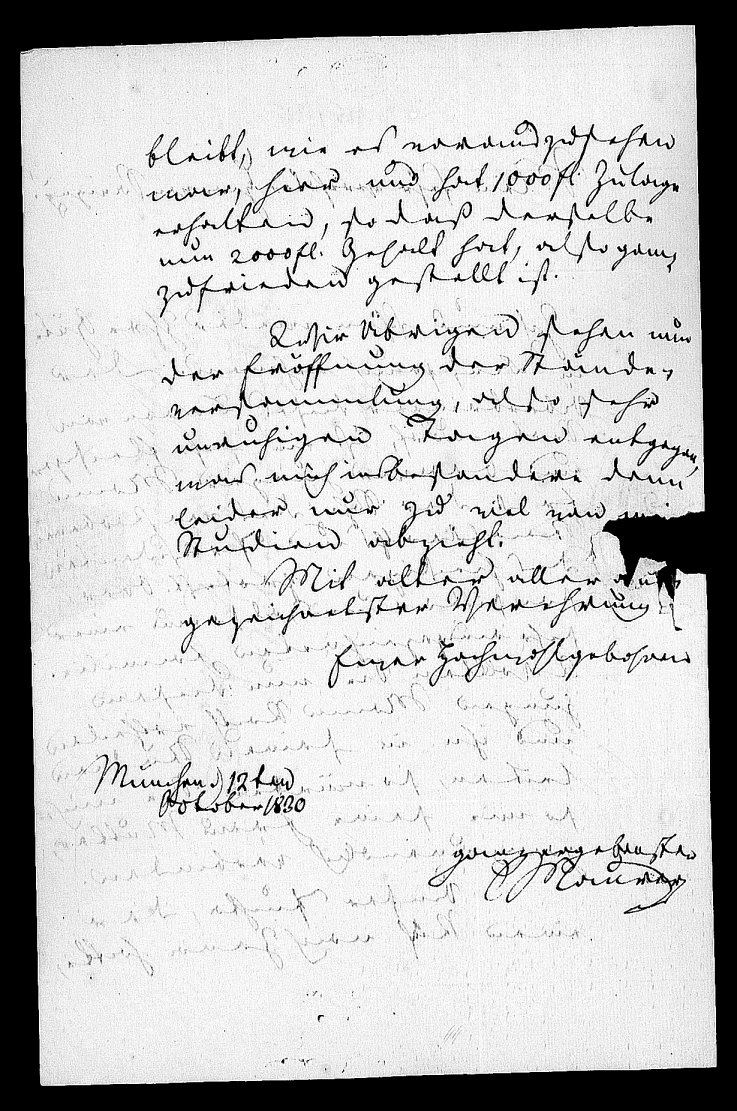 bleibt, wie es vorauszusehen
war, hier und hat 1000 fl. Zulage
erhalten, so daß derselbe
nun 2000 fl. Gehalt hat, also ganz
zufrieden gestellt ist.
Wir übrigens sehen nun
der Eröffnung der Stände-
versammlung, also sehr
unruhigen Tagen entgegen,
was mich insbesondere denn
leider nur zu viel von
Studien abzieht.
Mit alter aller aus-
gezeichnetster Verehrung
Euer Hochwohlgeboren
München d 12ten
October 1830
ganz ergebenster
Maurer